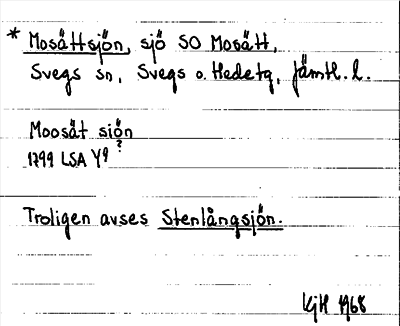 * Mosättsjön, sjö SO Mosätt,
Svegs sn, Svegs o. Hedetg, Jämtl. l.
Moosät siön
?
1799 LSA Y9
Troligen avses Stenlångsjön.
KjH 1968